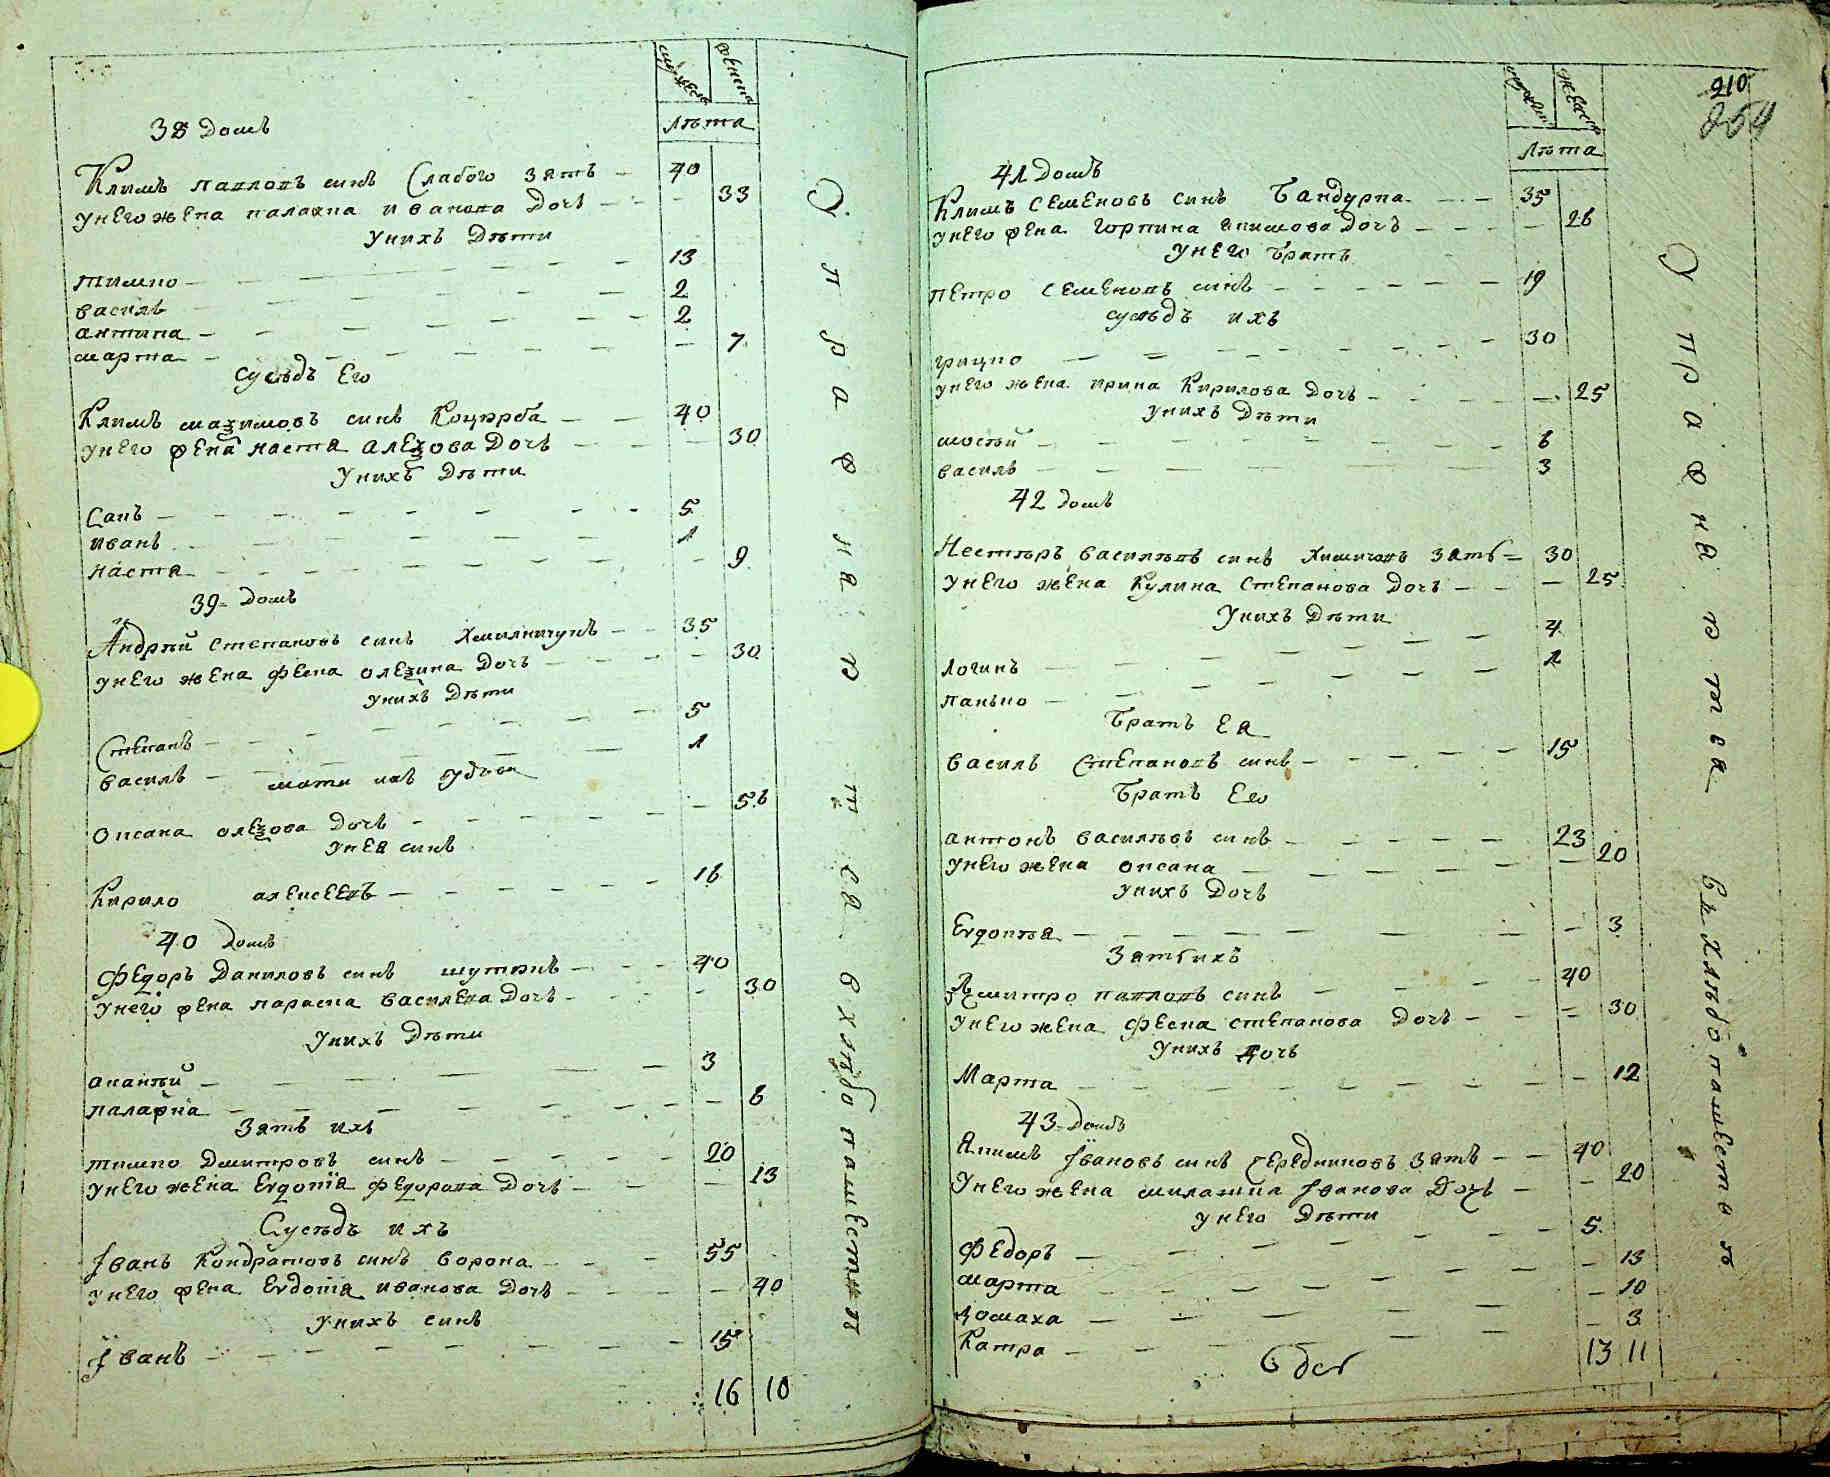 мужеска женска
Лѣта
38 Домъ
Климъ павловъ синъ Слабого зять 40
унего жена палажка иванова Дочъ 33
унихъ Дѣти
тимко 13
василь 2
антипа 2
марта 7
Сусѣдъ Его
Климъ маѯимовъ синъ 40
унего жена наста алеѯова Дочъ 30
Унихъ Дѣти
Сапъ 5
иванъ 1
наста 9
39 Домъ
Андрѣй степановъ синъ Хмилничукъ 35
унего жена феска олеѯина Дочъ 30
унихъ Дѣти
Степанъ 5
василь 1
мати ихъ удова
оксана олеѯова Дочъ 56
унея синъ
Кирило алексеевъ 16
40 Домъ
Федоръ Даниловъ синъ шутякъ 40
Унего жена параска василева Дочъ 30
Унихъ Дѣти
ананѣй 3
палажка 6
Зять ихъ
тимко Дмитровъ синъ 20
унего жена Евдокія федорова Дочъ 13
Сусѣдъ ихъ
Іванъ Кондратовъ синъ ворона 55
унего жена Евдокія иванова Дочъ 40
унихъ синъ
Іванъ 15
16 10
У права рства вхлѣбо паместви
210
254
мужеска женска
Лѣта
41 Домъ
Климъ семеновъ синъ Бандурка 35
унего жена горпина якимова Дочъ 26
унего братъ
петро семеновъ синъ 19
сусѣдъ ихъ
грицко 30
унего жена ирина Кирилова Дочъ 25
унихъ Дѣти
мосѣй 6
василь 3
42 домъ
Нестѣръ василѣвъ синъ Химичовъ зять 30
унего жена Кулина степанова Дочъ 25
Унихъ Дѣти
Логинъ 4
панько 1
Братъ Ея
василь Степановъ синъ 15
Братъ Его
антонъ василѣвъ синъ 23
унего жена оксана 20
унихъ Дочъ
Евдокѣя 3
Зять ихъ
Дмитро павловъ синъ 40
унего жена феска степанова Дочъ 30
унихъ Дочъ
Марта 12
43 Домъ
Якимъ Івановъ синъ Середниковъ зять 40
Унего жена милашка Іванова Дочъ 20
унего Дѣти
Федоръ 5
марта 13
домаха 10
Катра 3
13 11